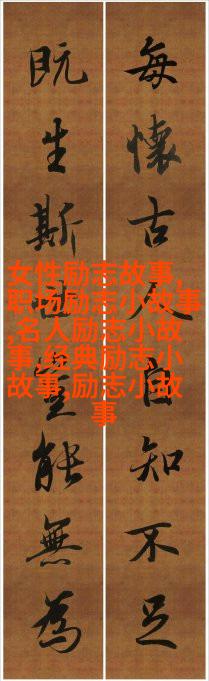 每懷古人自知不足
既生斯世豈能無為
女性励志故事,
职场励志小故事
,名人励志小故
事,经典励志小
故事,励志小故
事